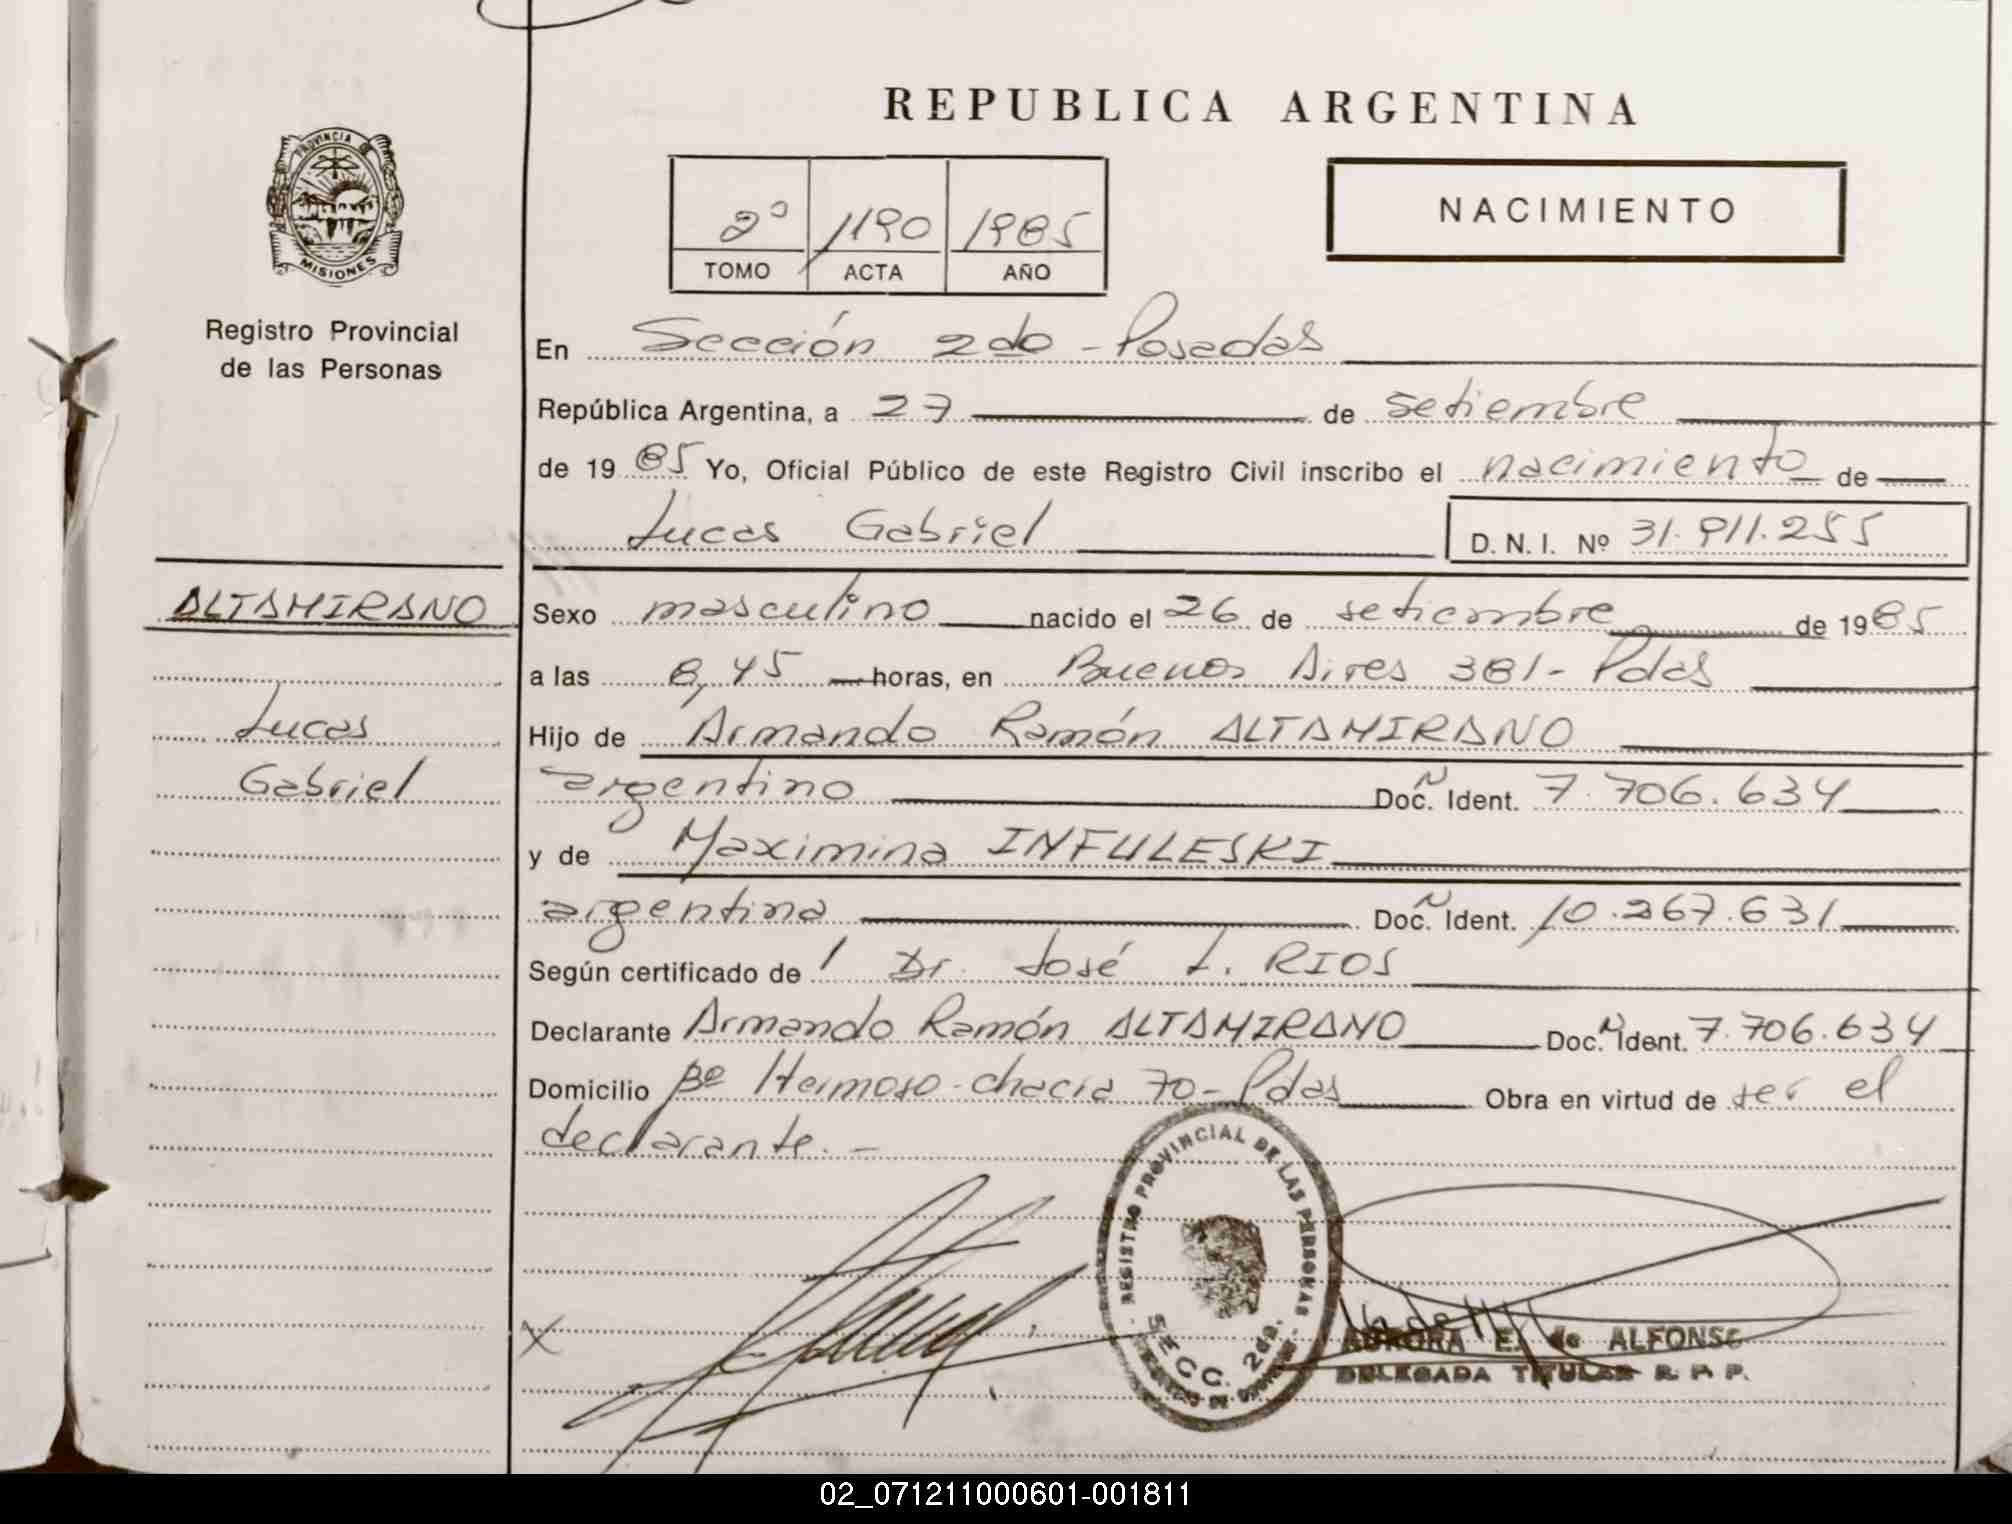 REPUBLICA ARGENTINA
PROVINCIA DE
MISIONES
Registro Provincial
de las Personas
2º 1190 1985
TOMO ACTA AÑO
NACIMIENTO
En Sección 2da - Posadas
República Argentina, a 27 de setiembre
de 1985 Yo, Oficial Público de este Registro Civil inscribo el nacimiento de
Lucas Gabriel D. N. I. Nº 31.911.255
ALTAMIRANO
Lucas
Gabriel
Sexo masculino nacido el 26 de setiembre de 1985
a las 8,45 horas, en Buenos Aires 381 - Pdas
Hijo de Armando Ramón ALTAMIRANO
argentino Doc. Ident. 7.706.634
y de Maximina INFULESKI
argentina Doc. Ident. 10.267.631
Según certificado de 1 Dr. José L. RIOS
Declarante Armando Ramón ALTAMIRANO Doc. Ident. 7.706.634
Domicilio Bº Hermoso - chacra 70 - Pdas Obra en virtud de ser el
declarante. -
REGISTRO PROVINCIAL DE LAS PERSONAS
SECC. 2da.
AURORA E. de ALFONSO
DELEGADA TITULAR R. P. P.
02_071211000601-001811